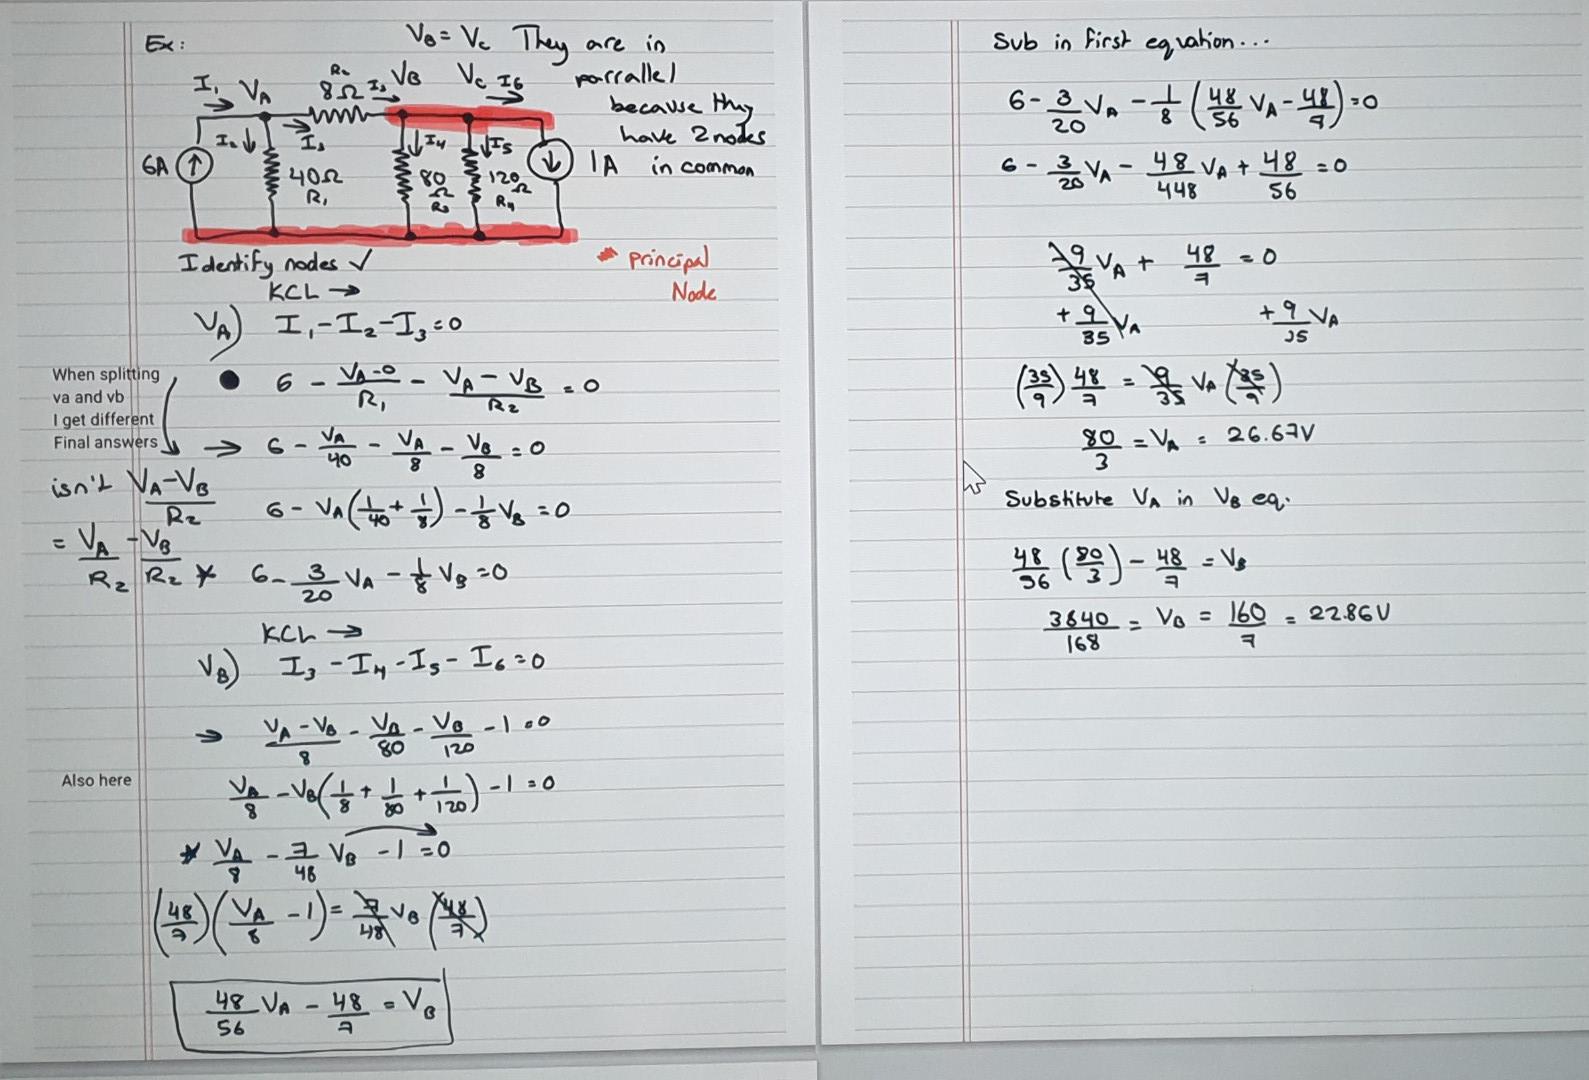 Ex:
VB = Vc They are in
parrallel
because they
have 2 nodes
in common
I1 VA R2 8Ω I3 VB Vc I6
I2 I3 I4 I5
6A 40Ω R1 80 Ω R3 120 Ω R4 1A
Identify nodes ✓
* Principal
Node
KCL →
VA) I1 - I2 - I3 = 0
● 6 - (VA-0)/R1 - (VA - VB)/R2 = 0
When splitting
va and vb
I get different
Final answers
→ 6 - VA/40 - VA/8 - VB/8 = 0
isn't (VA-VB)/R2
= VA/R2 - VB/R2
6 - VA(1/40 + 1/8) - 1/8 VB = 0
* 6 - 3/20 VA - 1/8 VB = 0
KCL →
VB) I3 - I4 - I5 - I6 = 0
→ (VA - VB)/8 - VB/80 - VB/120 - 1 = 0
Also here
VA/8 - VB(1/8 + 1/80 + 1/120) - 1 = 0
* VA/8 - 7/48 VB - 1 = 0
(48/7)(VA/8 - 1) = 7/48 VB (48/7)
48/56 VA - 48/7 = VB
Sub in first equation...
6 - 3/20 VA - 1/8 (48/56 VA - 48/7) = 0
6 - 3/20 VA - 48/448 VA + 48/56 = 0
-9/35 VA + 48/7 = 0
+ 9/35 VA + 9/35 VA
(35/9) 48/7 = 9/35 VA (35/9)
80/3 = VA = 26.67V
Substitute VA in VB eq.
48/56 (80/3) - 48/7 = VB
3840/168 = VB = 160/7 = 22.86V